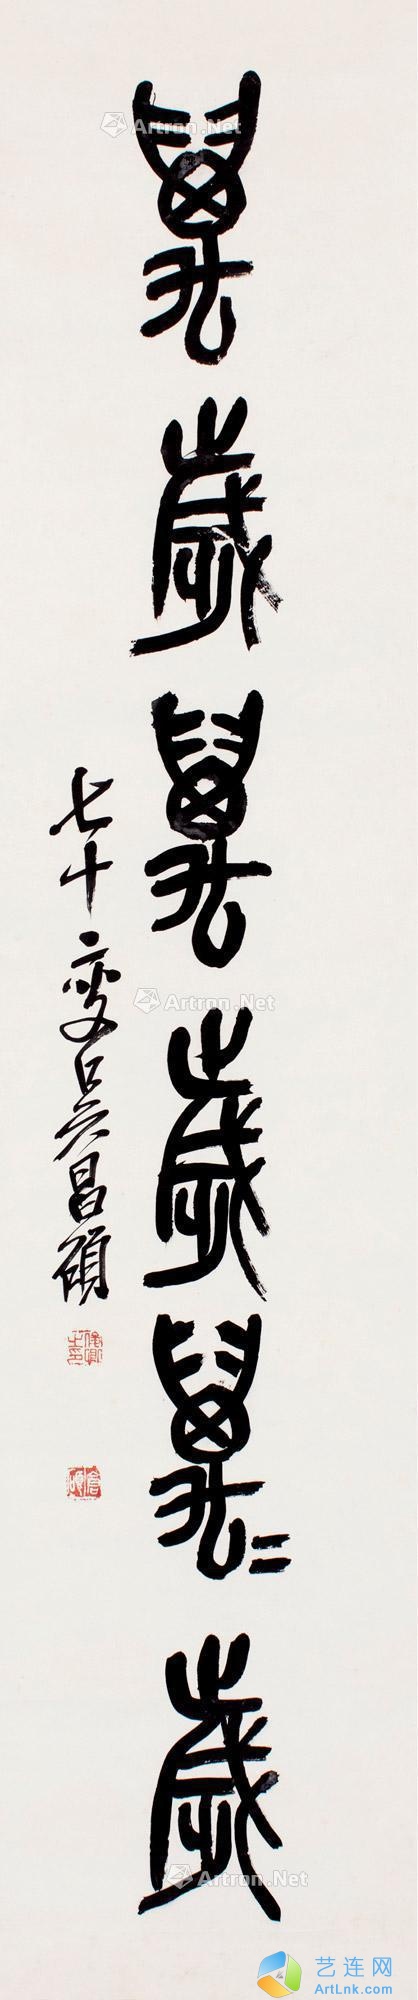 萬歲萬歲萬〻歲
七十二叟吳昌碩
Artron.Net
Artron.Net
Artron.Net
艺连网
ArtLnk.com